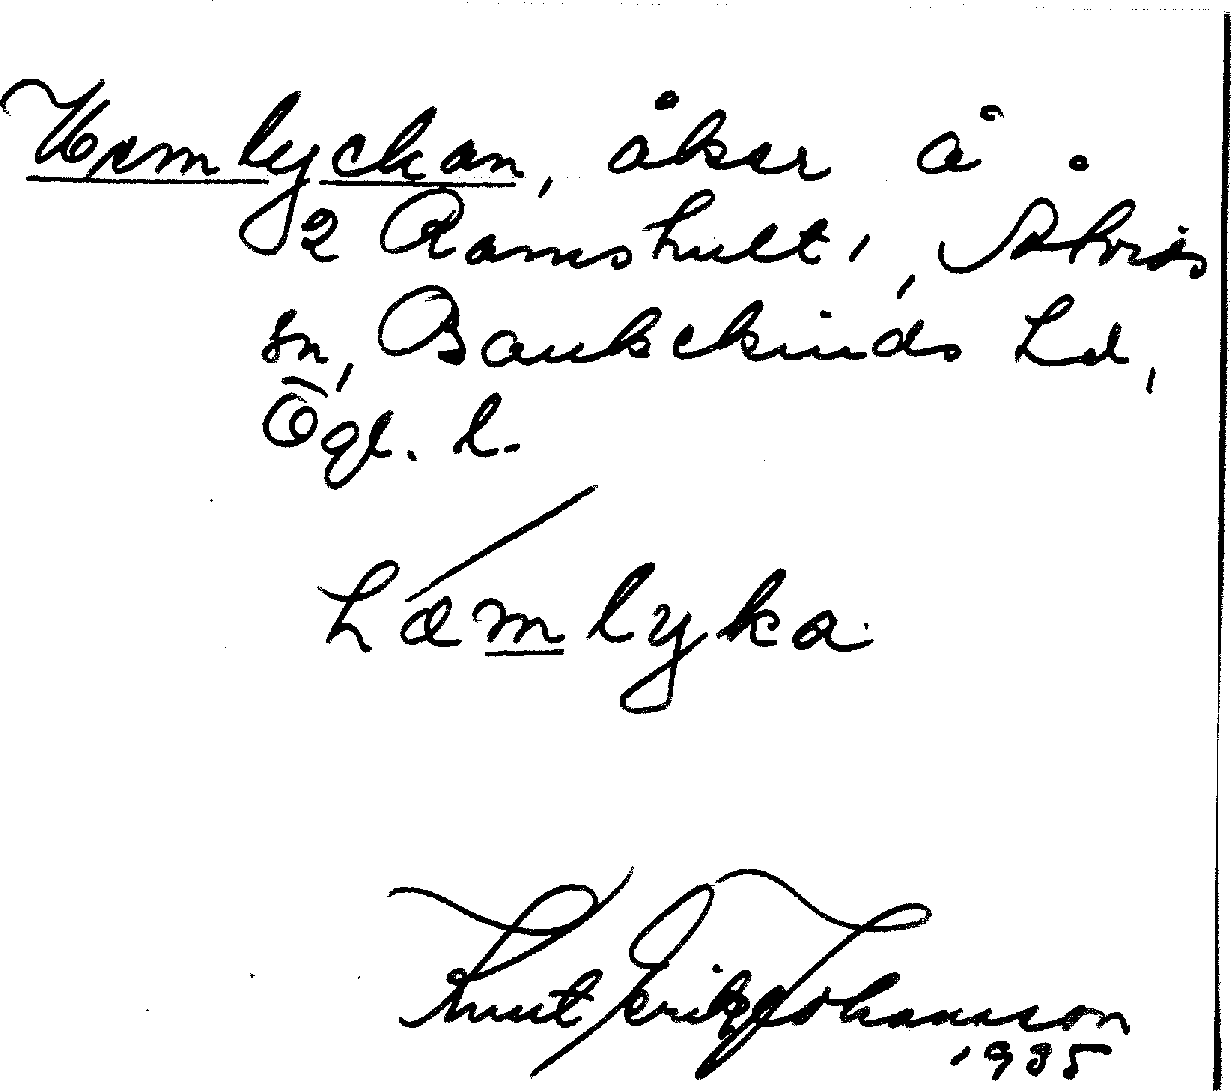 Hemlyckan, åker å
2 Ramshult, Åtvids
sn, Bankekinds hd,
Ögl. l.
hæmlyka
Knut Erik Johansson
1935